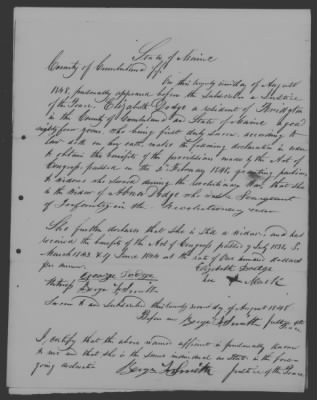 State of Maine
County of Cumberland ss
On this twenty second day of August
1848, personally appeared before the Subscriber a Justice
of the Peace, Elizabeth Dodge a resident of Bridgton
in the County of Cumberland and State of Maine aged
eighty four years who being first duly sworn according to
law doth on her oath, make the following declaration in order
to obtain the benefits of the provision made by the Act of
Congress passed on the 2d February 1848, granting pensions
to widows who served during the Revolutionary War, that she
is the Widow of Abner Dodge who was a
of Infantry in the Revolutionary
She further declares that she is still a widow, and has
received the benefits of the Act of Congress passed 7 July 1838, 3
March 1843 & 17 June 1844 at the rate of One hundred dollars
per annum.
Elizabeth Dodge
George Dodge
her + Mark
Benja F Smith
Sworn to and subscribed this twenty second day of August 1848
Before me Benja F Smith Justice of the
I certify that the above named affiant is personally known
to me and that she is the same individual as stated in the fore-
going declaration
Benja F Smith Justice of the Peace